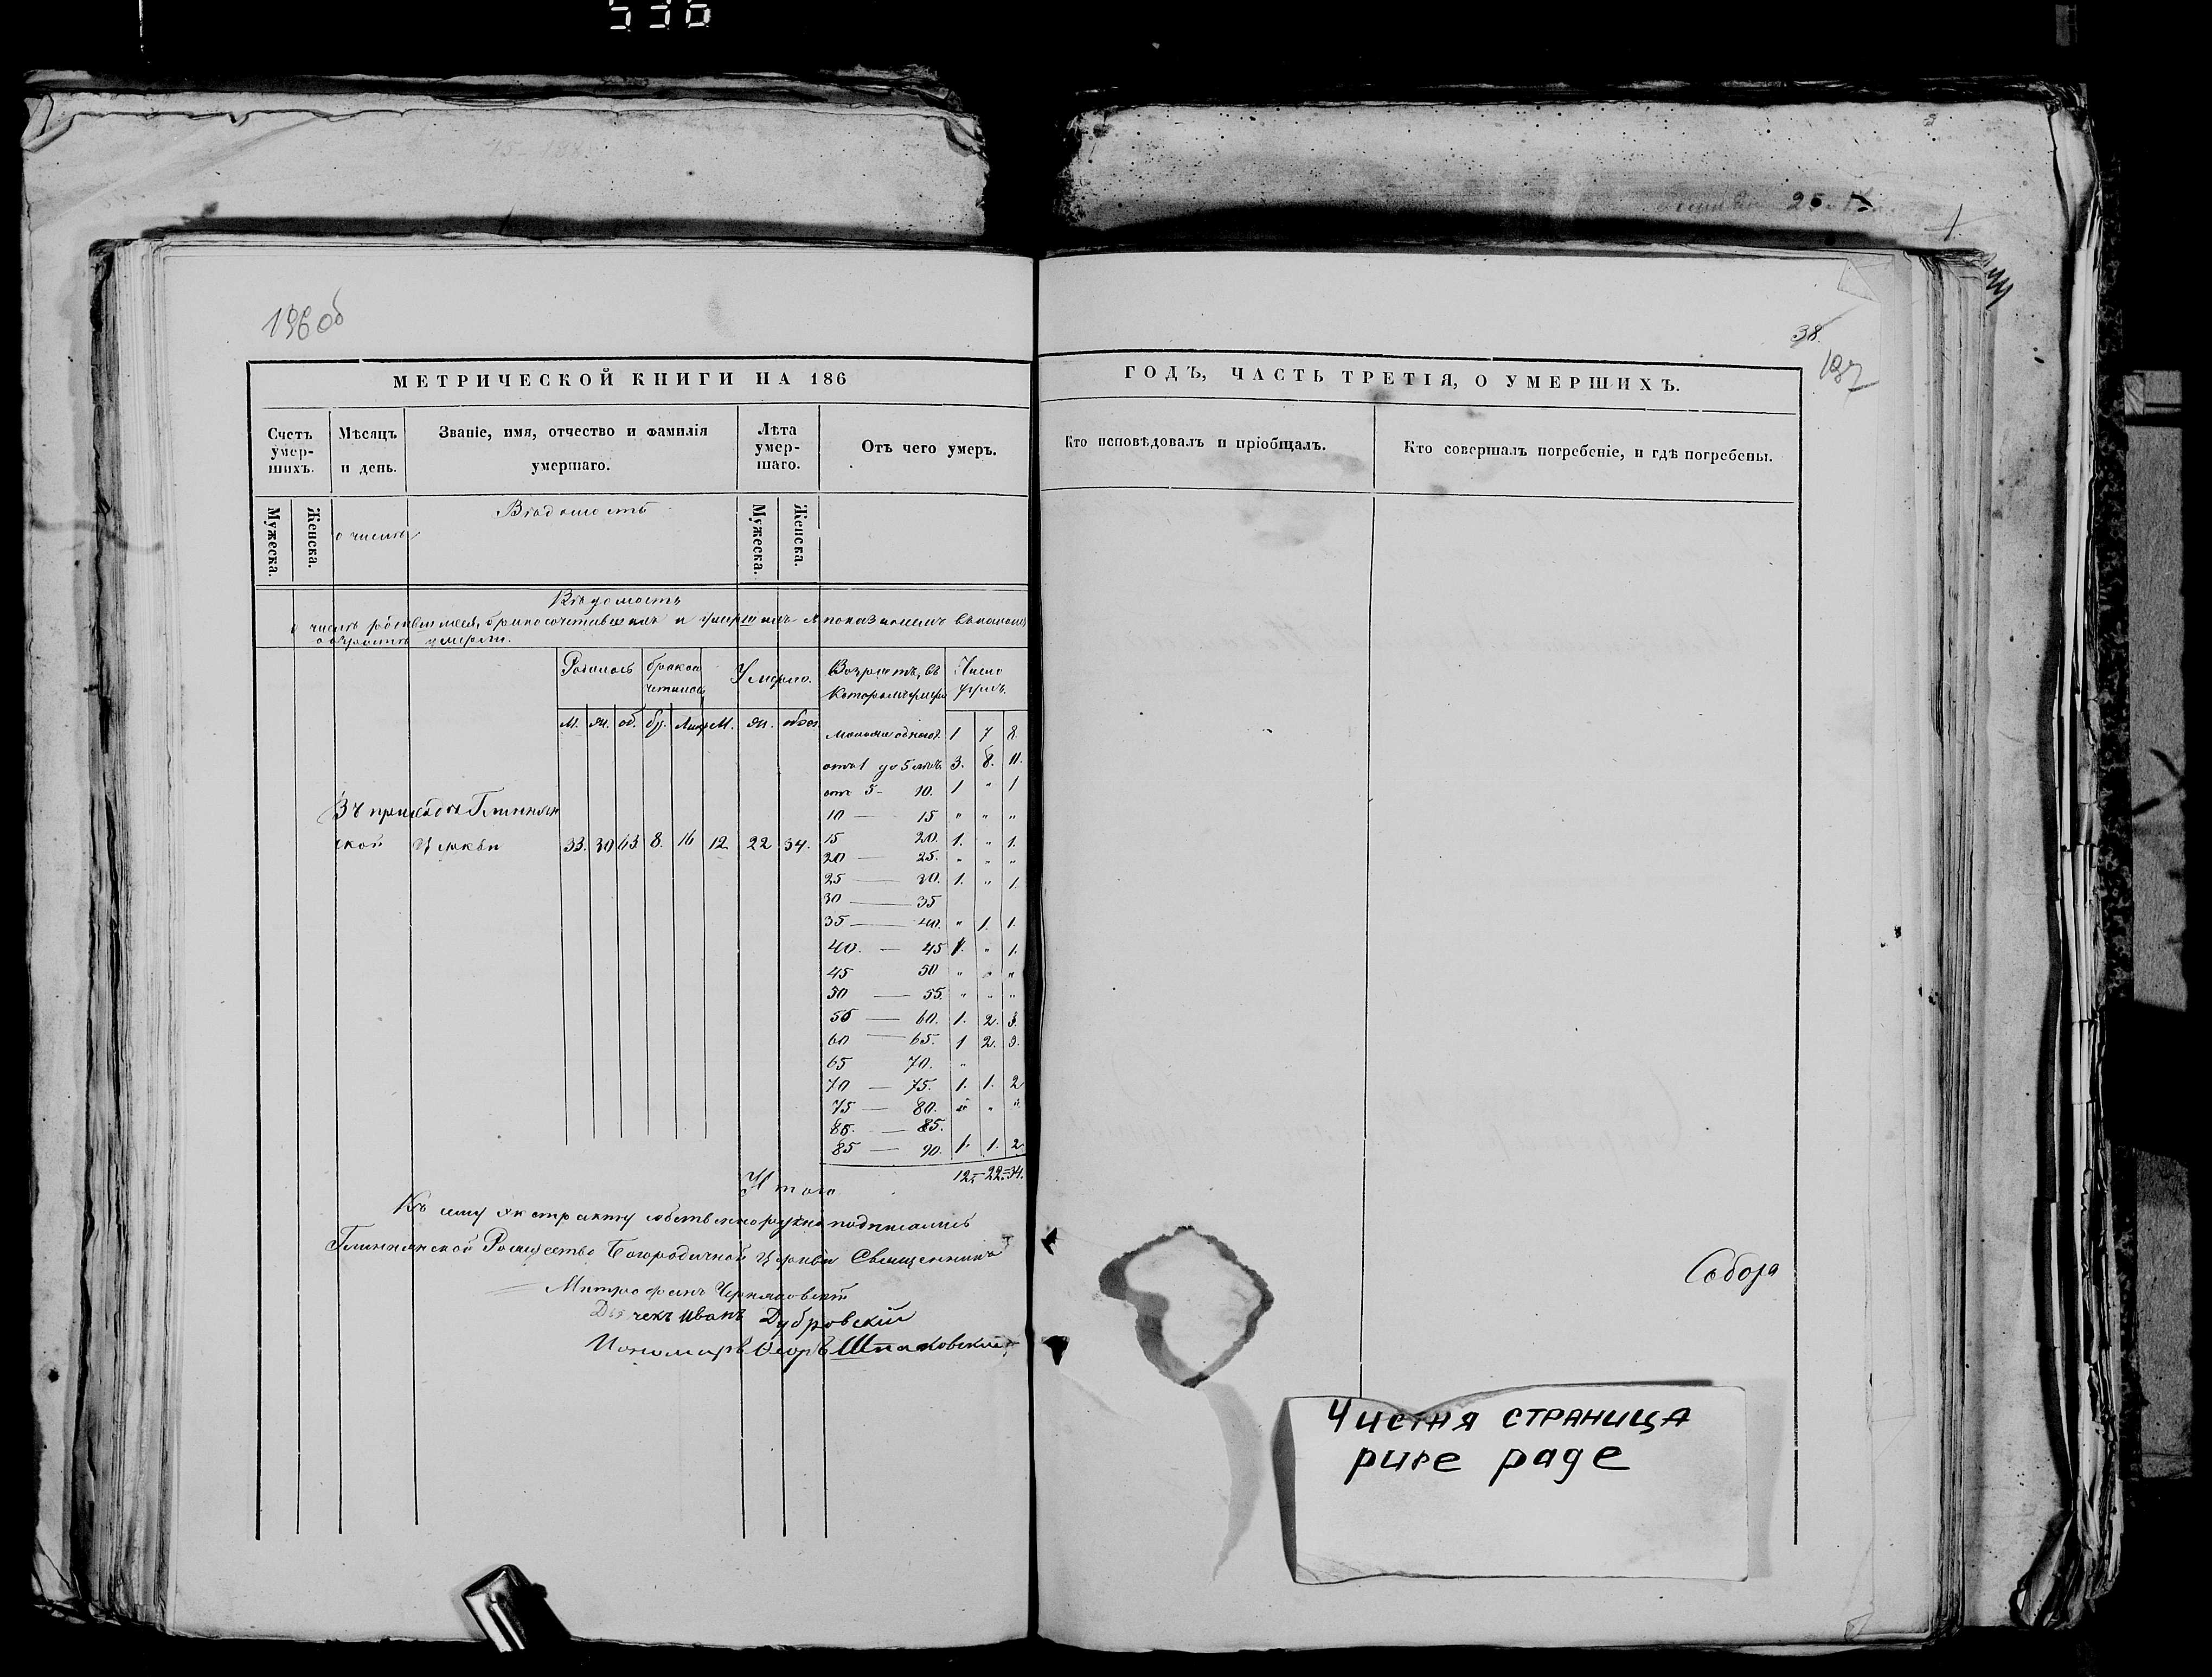 536
25
196 об
38
197
МЕТРИЧЕСКОЙ КНИГИ НА 186
ГОДЪ, ЧАСТЬ ТРЕТІЯ, О УМЕРШИХЪ.
Счетъ умер-шихъ.
Мѣсяцъ и день.
Званіе, имя, отчество и фамилія умершаго.
Лѣта умер-шаго.
Отъ чего умеръ.
Кто исповѣдовалъ и пріобщалъ.
Кто совершалъ погребеніе, и гдѣ погребены.
Мужеска.
Женска.
Мужеска.
Женска.
Вѣдомость
о числѣ
Вѣдомость
о числѣ родившихся, бракосочетавшихся и умершихъ съ показаніемъ въ какомъ
возрастѣ умерли.
Родилось
бракосочеталось
Умерло.
Возрастъ, въ
которомъ умерли
Число
душъ.
М. Ж. об. бр. Лиц. М. Ж. обоего
менѣе одного г. 1 7 8.
отъ 1 до 5 лѣтъ 3. 8. 11.
отъ 5 - 10. 1 " 1
10 — 15 " " "
15 20. 1. " 1.
20 — 25. " " "
25 — 30. 1. " 1.
30 — 35
35 — 40. " 1. 1.
40. — 45 1. " 1.
45 50 " " "
50 — 55. " " "
55 — 60. 1. 2. 3.
60 — 65. 1 2. 3.
65 70. "
70 — 75. 1. 1. 2
75 — 80. " " "
85. — 85.
85 — 90. 1. 1. 2
Въ приходѣ Глинян
ской Церкви 33. 30 63 8. 16 12 22 34.
Итого 12 - 22 = 34.
Къ сему экстракту собственноручно подписались
Глинянской Рождество Богородичной Церкви Священникъ
Митрофанъ
Дьячекъ Иванъ Дубровскій
Пономарь Шпаковскій
Собора
Чистая страница
pure page